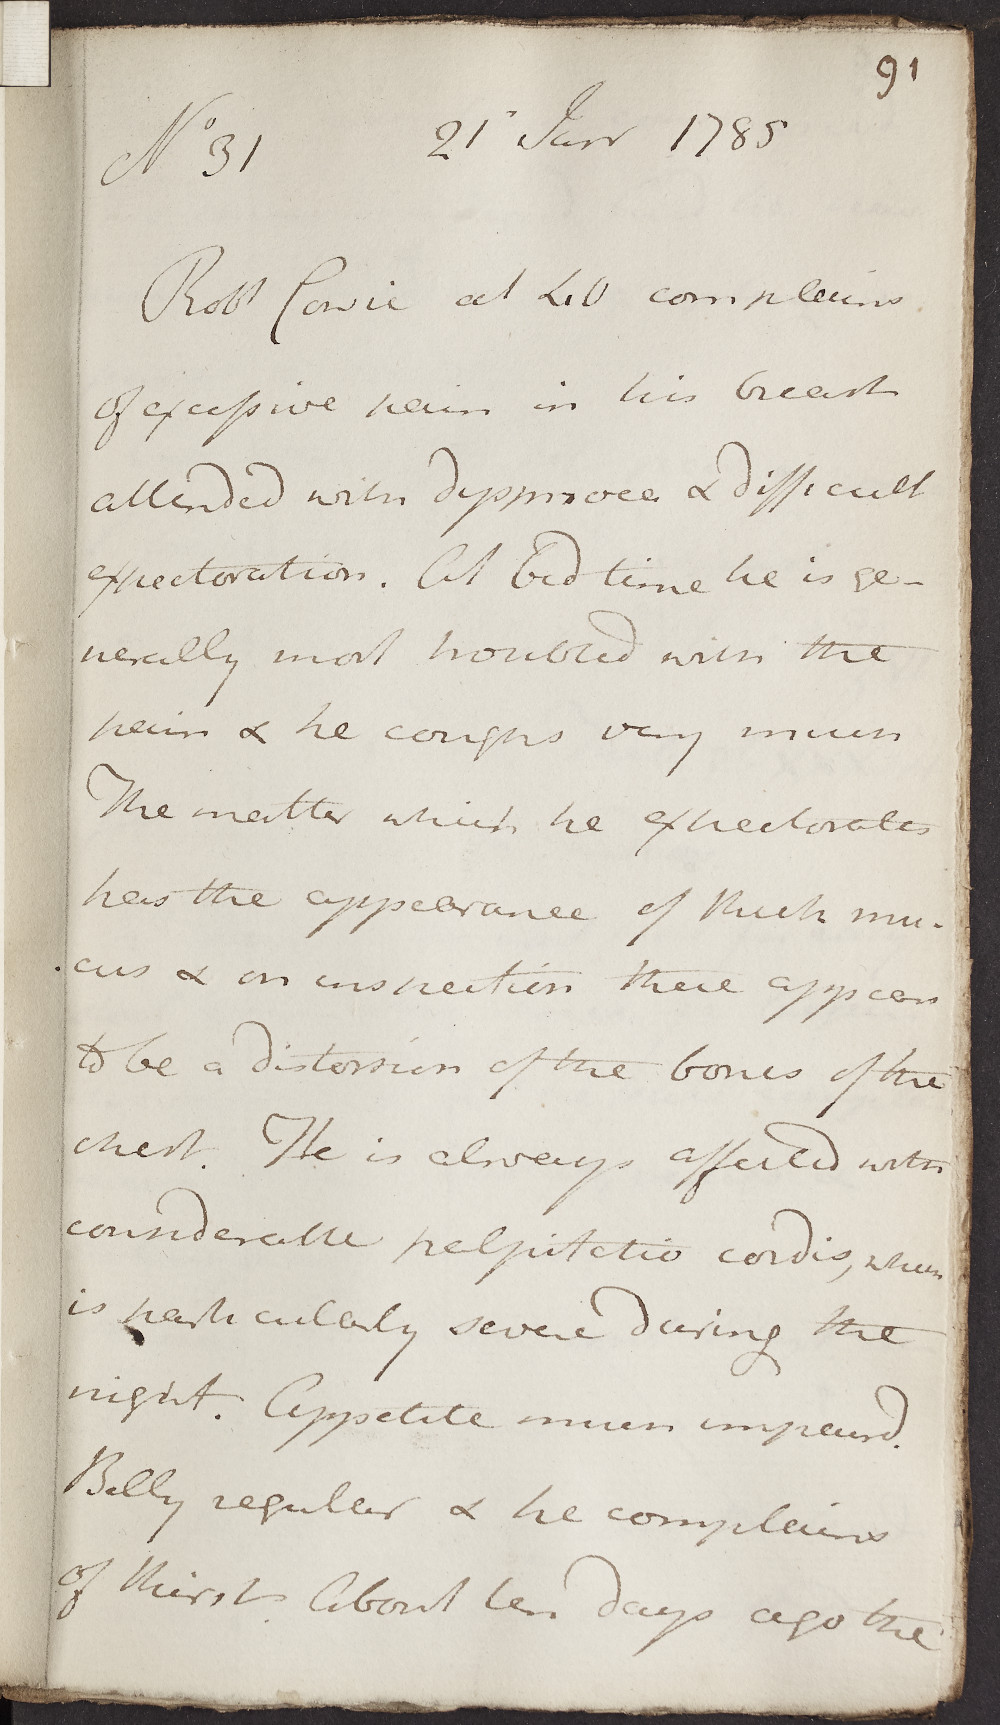 91
No 31 21st Janr 1785
Robt Cowie aet 40 complains
of excessive pain in his breast
attended with dyspnoea & difficult
expectoration. At bed time he is ge-
nerally most troubled with the
pain & he coughs very much
The matter which he expectorates
has the appearance of thick mu-
cus & on inspection there appears
to be a distorsion of the bones of the
chest. He is always affected with
considerable palpitatio cordis, which
is particularly severe during the
night. Appetite much impaird.
Belly regular & he complains
of thirst. About ten days ago the